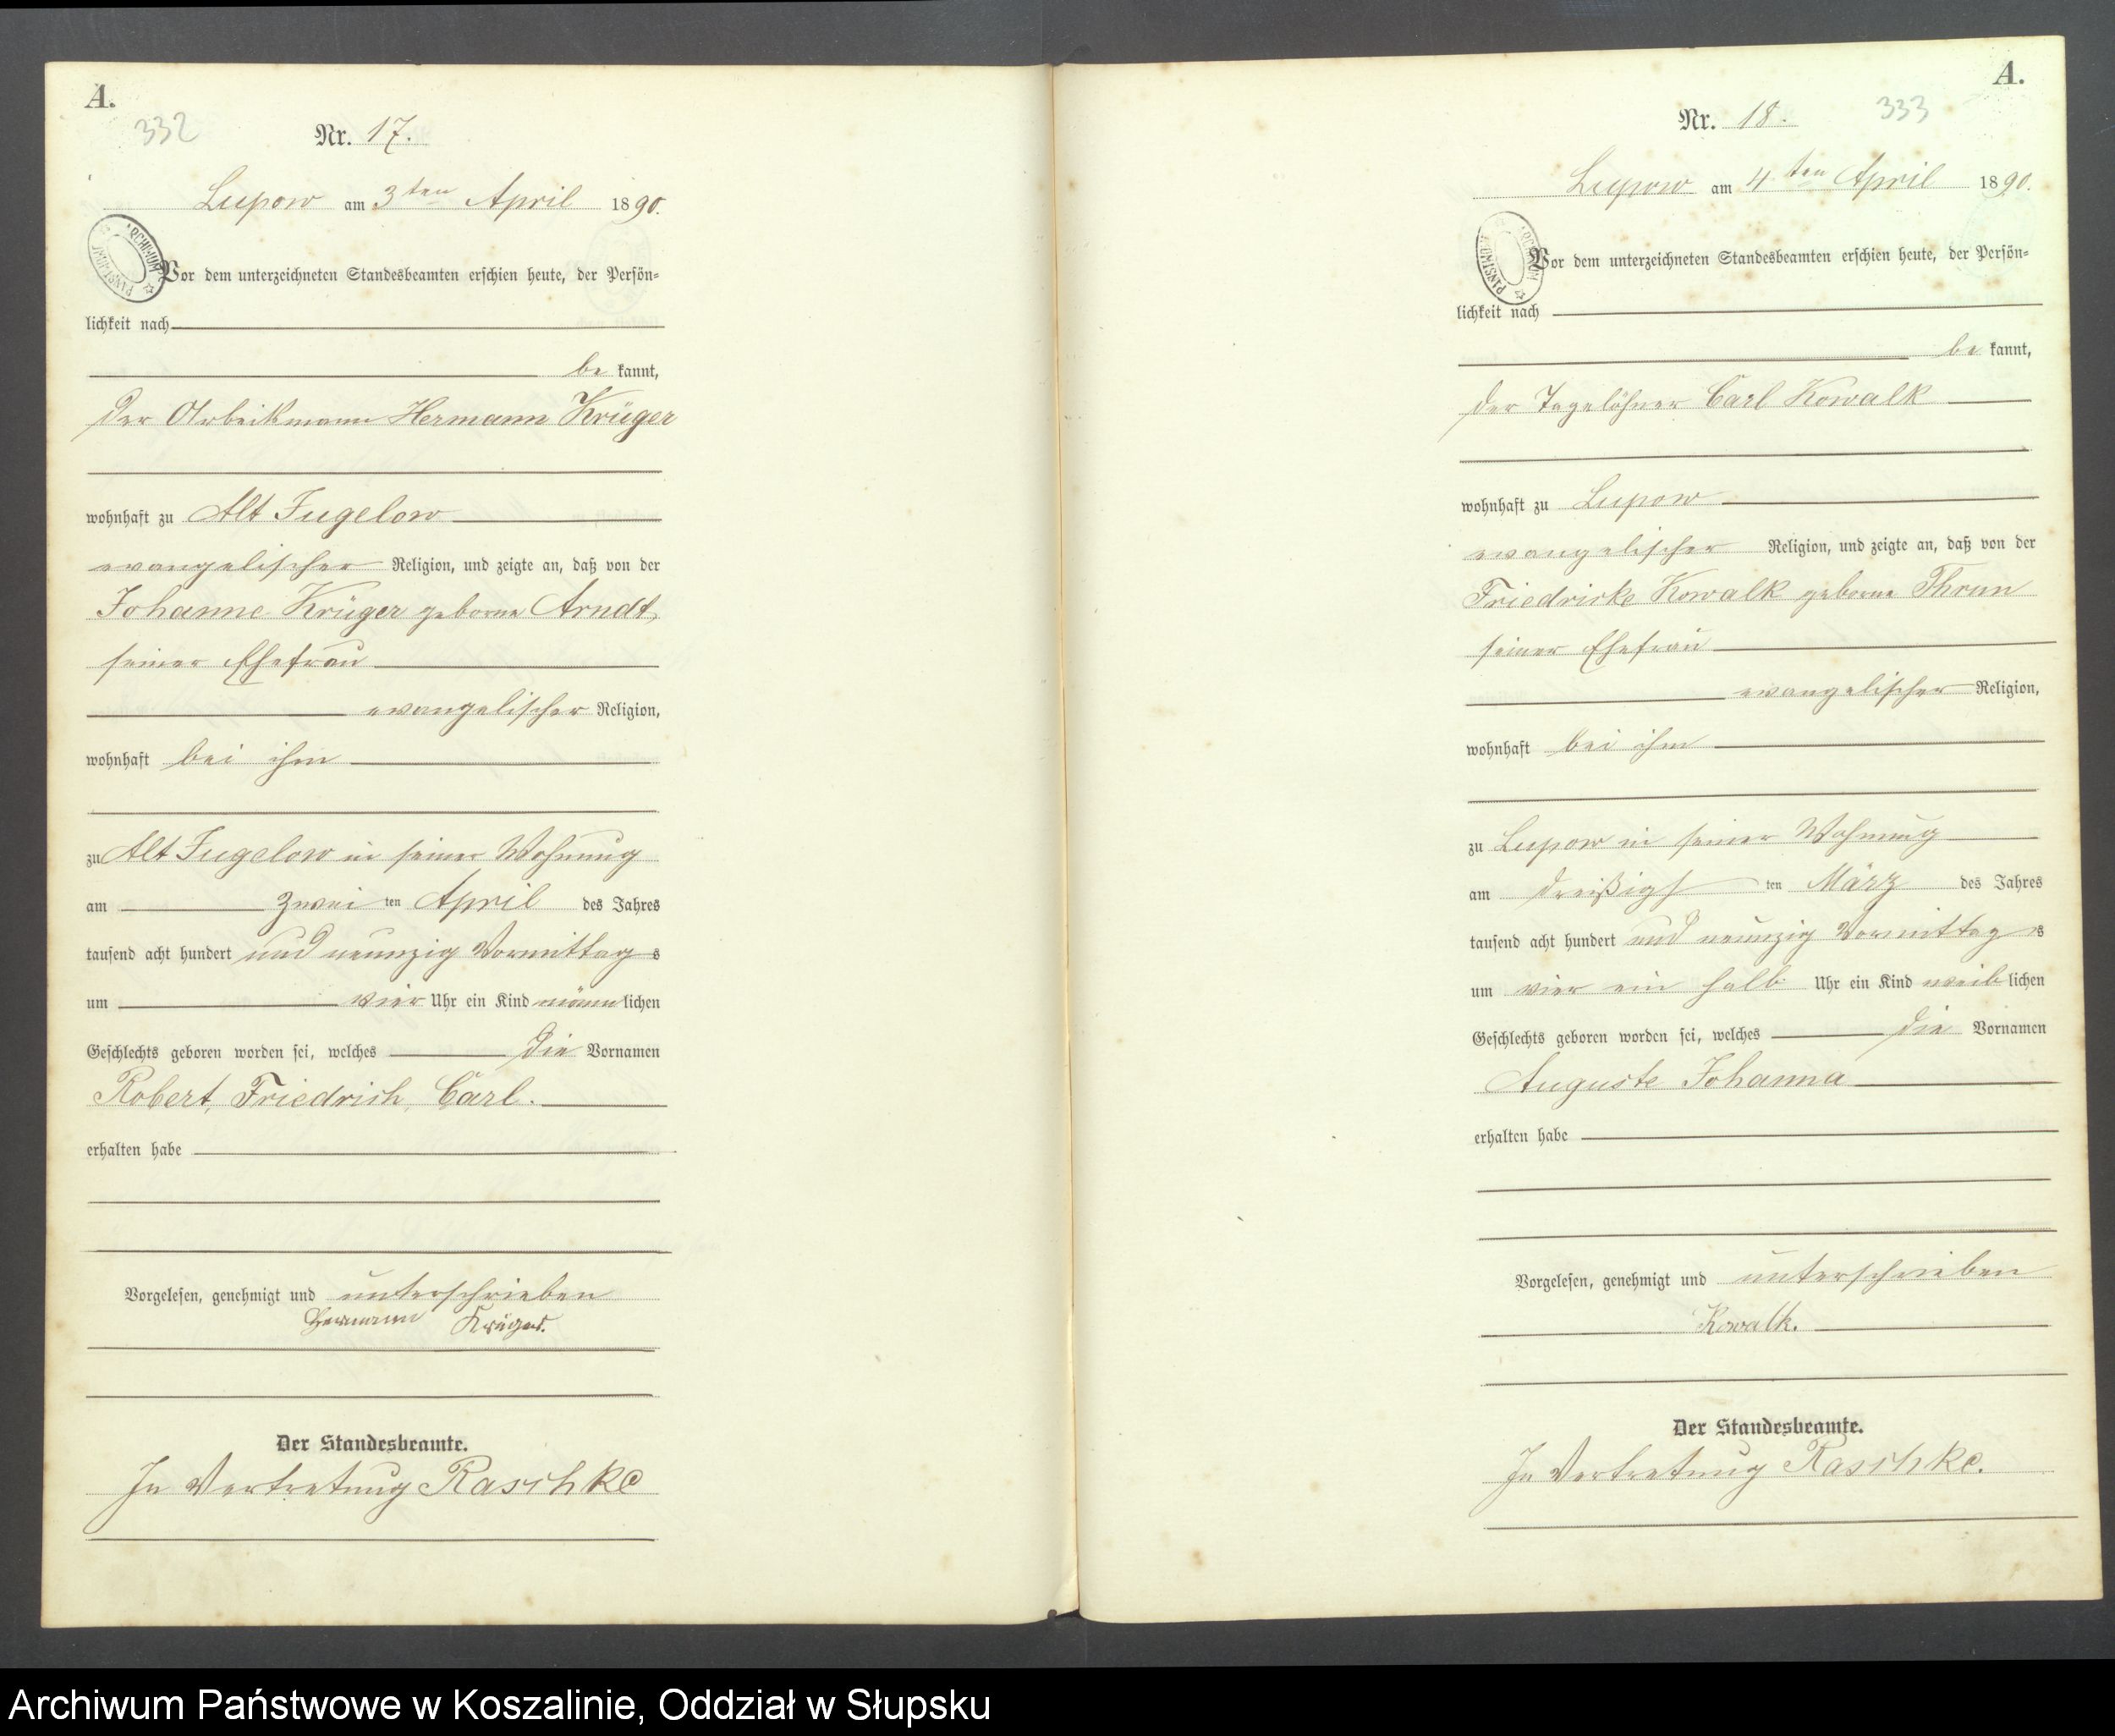 A.
332
Nr. 17.
Lupow am 3ten April 1890.
Vor dem unterzeichneten Standesbeamten erschien heute, der Persön-
lichkeit nach
be kannt,
der Arbeitsmann Hermann Krüger
wohnhaft zu Alt Jugelow
evangelischer Religion, und zeigte an, daß von der
Johanne Krüger geborne Arndt,
seiner Ehefrau
evangelischer Religion,
wohnhaft bei ihm
zu Alt Jugelow in seiner Wohnung
am zwei ten April des Jahres
tausend acht hundert und neunzig Vormittag s
um vier Uhr ein Kind männ lichen
Geschlechts geboren worden sei, welches die Vornamen
Robert, Friedrich, Carl.
erhalten habe
Vorgelesen, genehmigt und unterschrieben
Hermann Krüger.
Der Standesbeamte.
In Vertretung Raschke
ARCHIWUM PAŃSTWOWE
A.
333
Nr. 18.
Lupow am 4ten April 1890.
Vor dem unterzeichneten Standesbeamten erschien heute, der Persön-
lichkeit nach
be kannt,
der Tagelöhner Carl Kowalk
wohnhaft zu Lupow
evangelischer Religion, und zeigte an, daß von der
Friedricke Kowalk geborne Thrun
seiner Ehefrau
evangelischer Religion,
wohnhaft bei ihm
zu Lupow in seiner Wohnung
am dreißigs ten März des Jahres
tausend acht hundert und neunzig Vormittag s
um vier ein halb Uhr ein Kind weib lichen
Geschlechts geboren worden sei, welches die Vornamen
Auguste Johanna
erhalten habe
Vorgelesen, genehmigt und unterschrieben
Kowalk.
Der Standesbeamte.
In Vertretung Raschke.
ARCHIWUM PAŃSTWOWE
Archiwum Państwowe w Koszalinie, Oddział w Słupsku